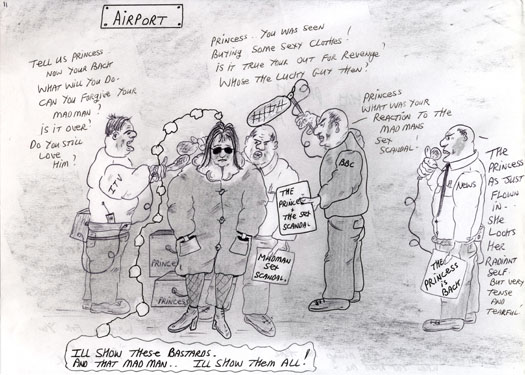 11
AIRPORT
TELL US PRINCESS
NOW YOUR BACK
WHAT WILL YOU DO-
CAN YOU FORGIVE YOUR
MADMAN?
IS IT OVER?
DO YOU STILL
LOVE
HIM?
PRINCESS. YOU WAS SEEN
BUYING SOME SEXY CLOTHES!
IS IT TRUE YOUR OUT FOR REVENGE?
WHOSE THE LUCKY GUY THEN!
PRINCESS
WHAT WAS YOUR
REACTION TO THE
MADMANS
SEX
SCANDAL-
THE
PRINCESS
AS JUST
FLOWN
IN-
SHE
LOOKS
HER
RADIANT
SELF
BUT VERY
TENSE
AND
TEARFUL!
ITV
BBC
NEWS
THE
PRINCESS
+
THE SEX
SCANDAL
MADMAN
SEX
SCANDAL.
THE
PRINCESS
IS
BACK
PRINCE
PRINCESS
ILL SHOW THESE BASTARDS.
AND THAT MAD MAN.. ILL SHOW THEM ALL!